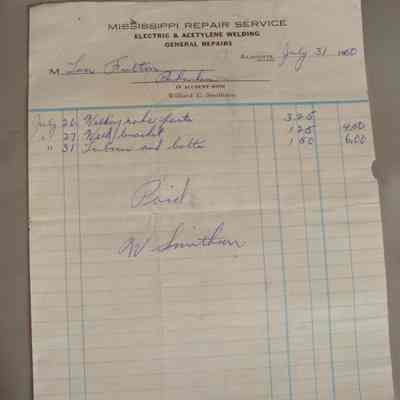 MISSISSIPPI REPAIR SERVICE
ELECTRIC & ACETYLENE WELDING
GENERAL REPAIRS
July 31 1960
M
IN ACCOUNT WITH
Willard C. Smithson
July 26 Welding rake parts 3.25
" 27 Weld bracket 1.25 4.50
" 31 Labour and bolts 1.50 6.00
Paid
W Smithson